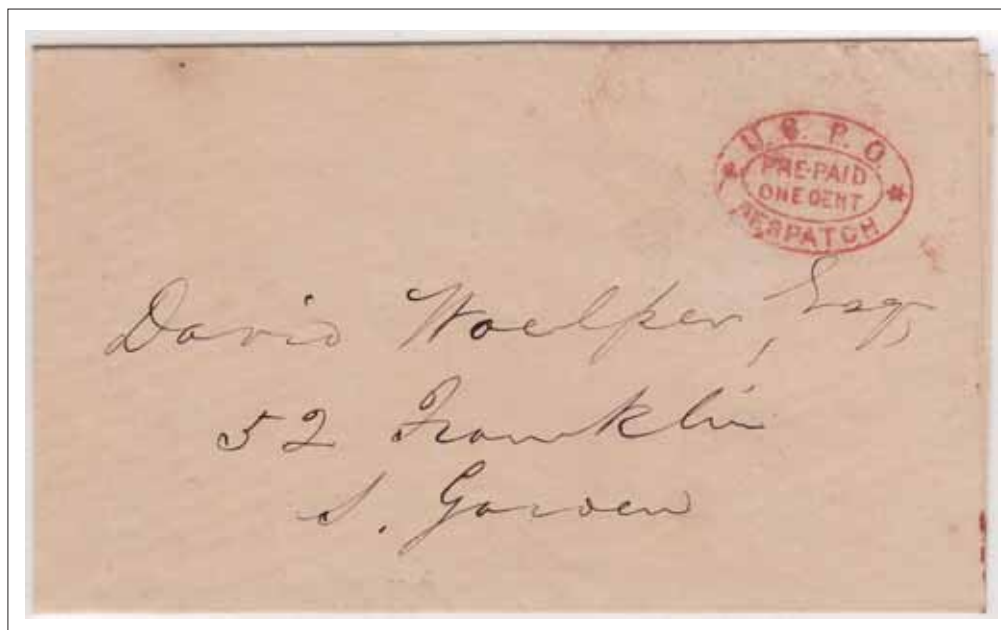 U.S.P.O.
PRE-PAID
ONE CENT
DESPATCH
David Woelper, Esq,
52 Franklin
S. Garden